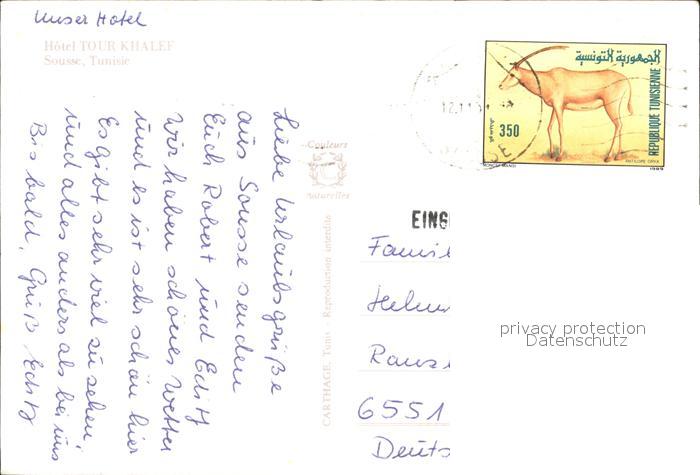 Unser Hotel
Hôtel TOUR KHALEF
Sousse, Tunisie
Liebe Urlaubsgrüße
aus Sousse senden
Euch Robert und Edith
Wir haben schönes Wetter
und es ist sehr schön hier
Es gibt sehr viel zu sehen,
und alles anders als bei uns
Bis bald, Gruß Edith
Couleurs
naturelles
CARTHAGE, Tunis - Reproduction interdite
الجمهورية التونسية
REPUBLIQUE TUNISIENNE
350
ANTILOPE ORYX
1989
12.11
EING
Famil
Helmu
6551
Deuts
privacy protection
Datenschutz